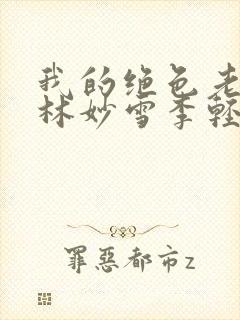 我的绝色老
林妙雪季轻
罪惡都市z